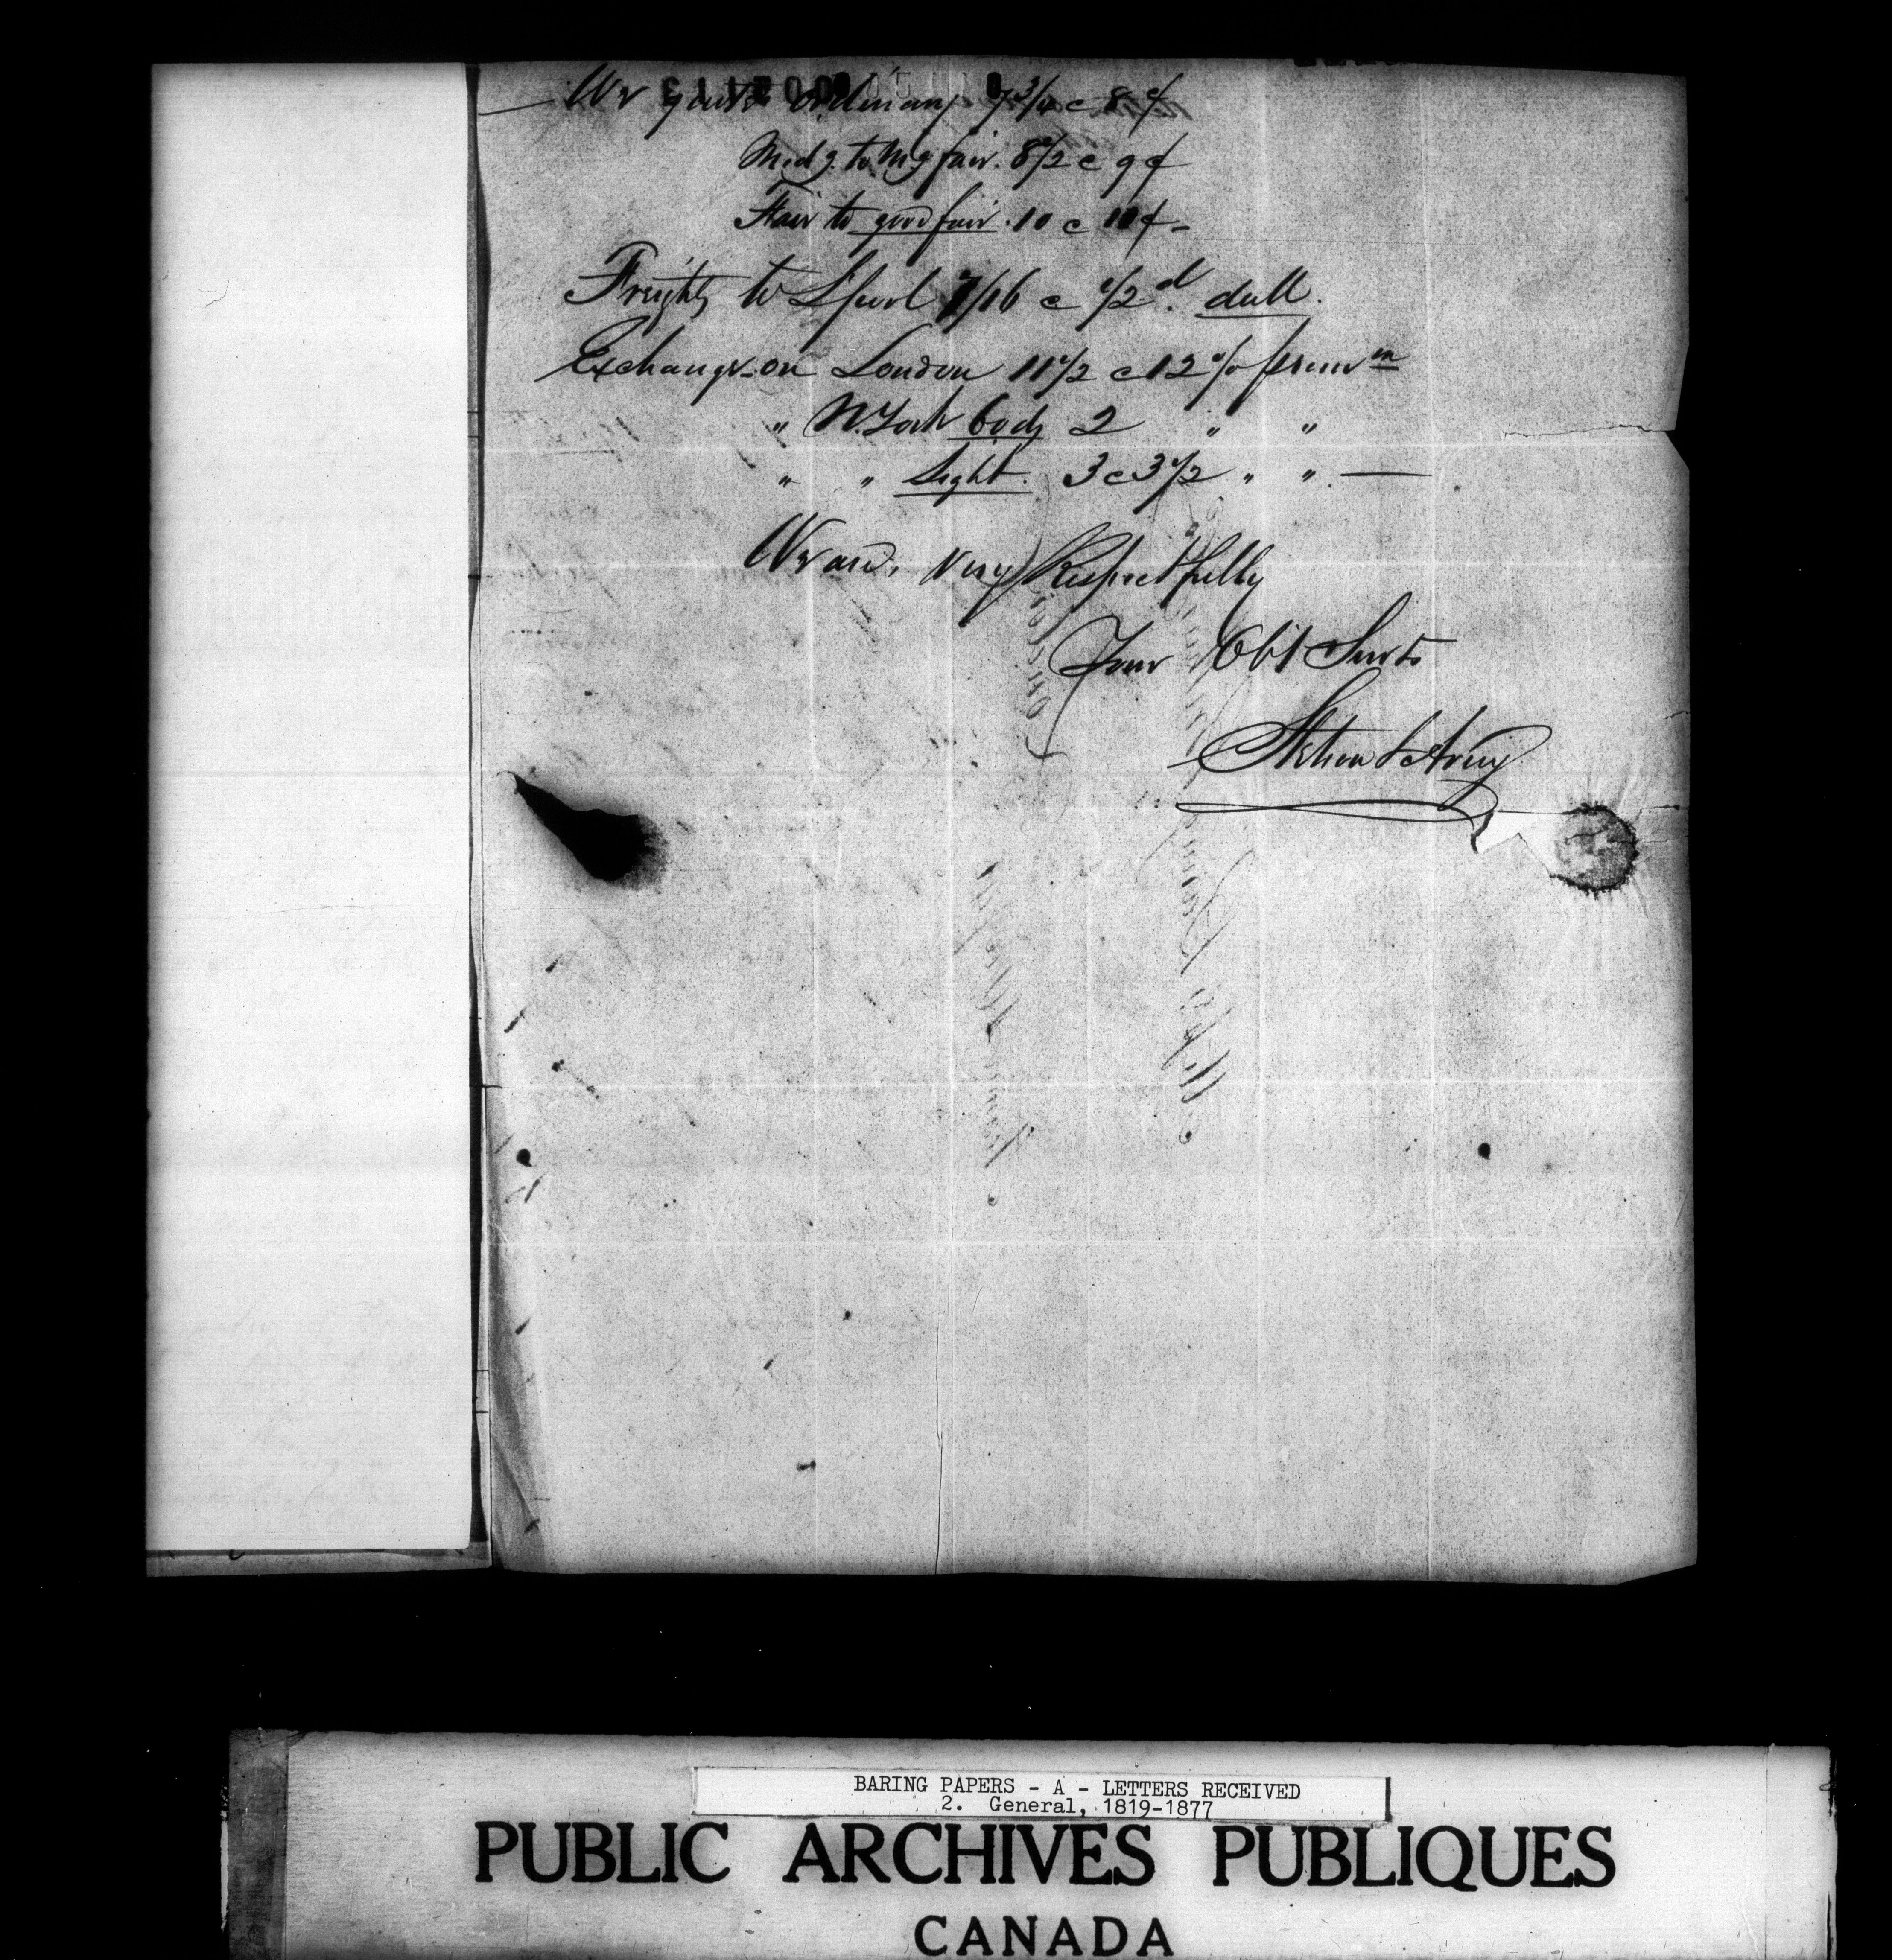 We quote ordinary 7 3/4 @ 8 ¢
Midg. to Mg fair. 8 1/2 @ 9 ¢
Fair to good fair. 10 @ 11 ¢ -
Freights to Lpool 7/16 @ 1/2 d. dull.
Exchange on London 11 1/2 @ 12 % premm
" N. York 60 ds 2 " "
" " Sight. 3 @ 3 1/2 " ". —
We are, Very Respectfully
Your Obt Servts
Stetson & Avery
BARING PAPERS - A - LETTERS RECEIVED
2. General, 1819-1877
PUBLIC ARCHIVES PUBLIQUES
CANADA